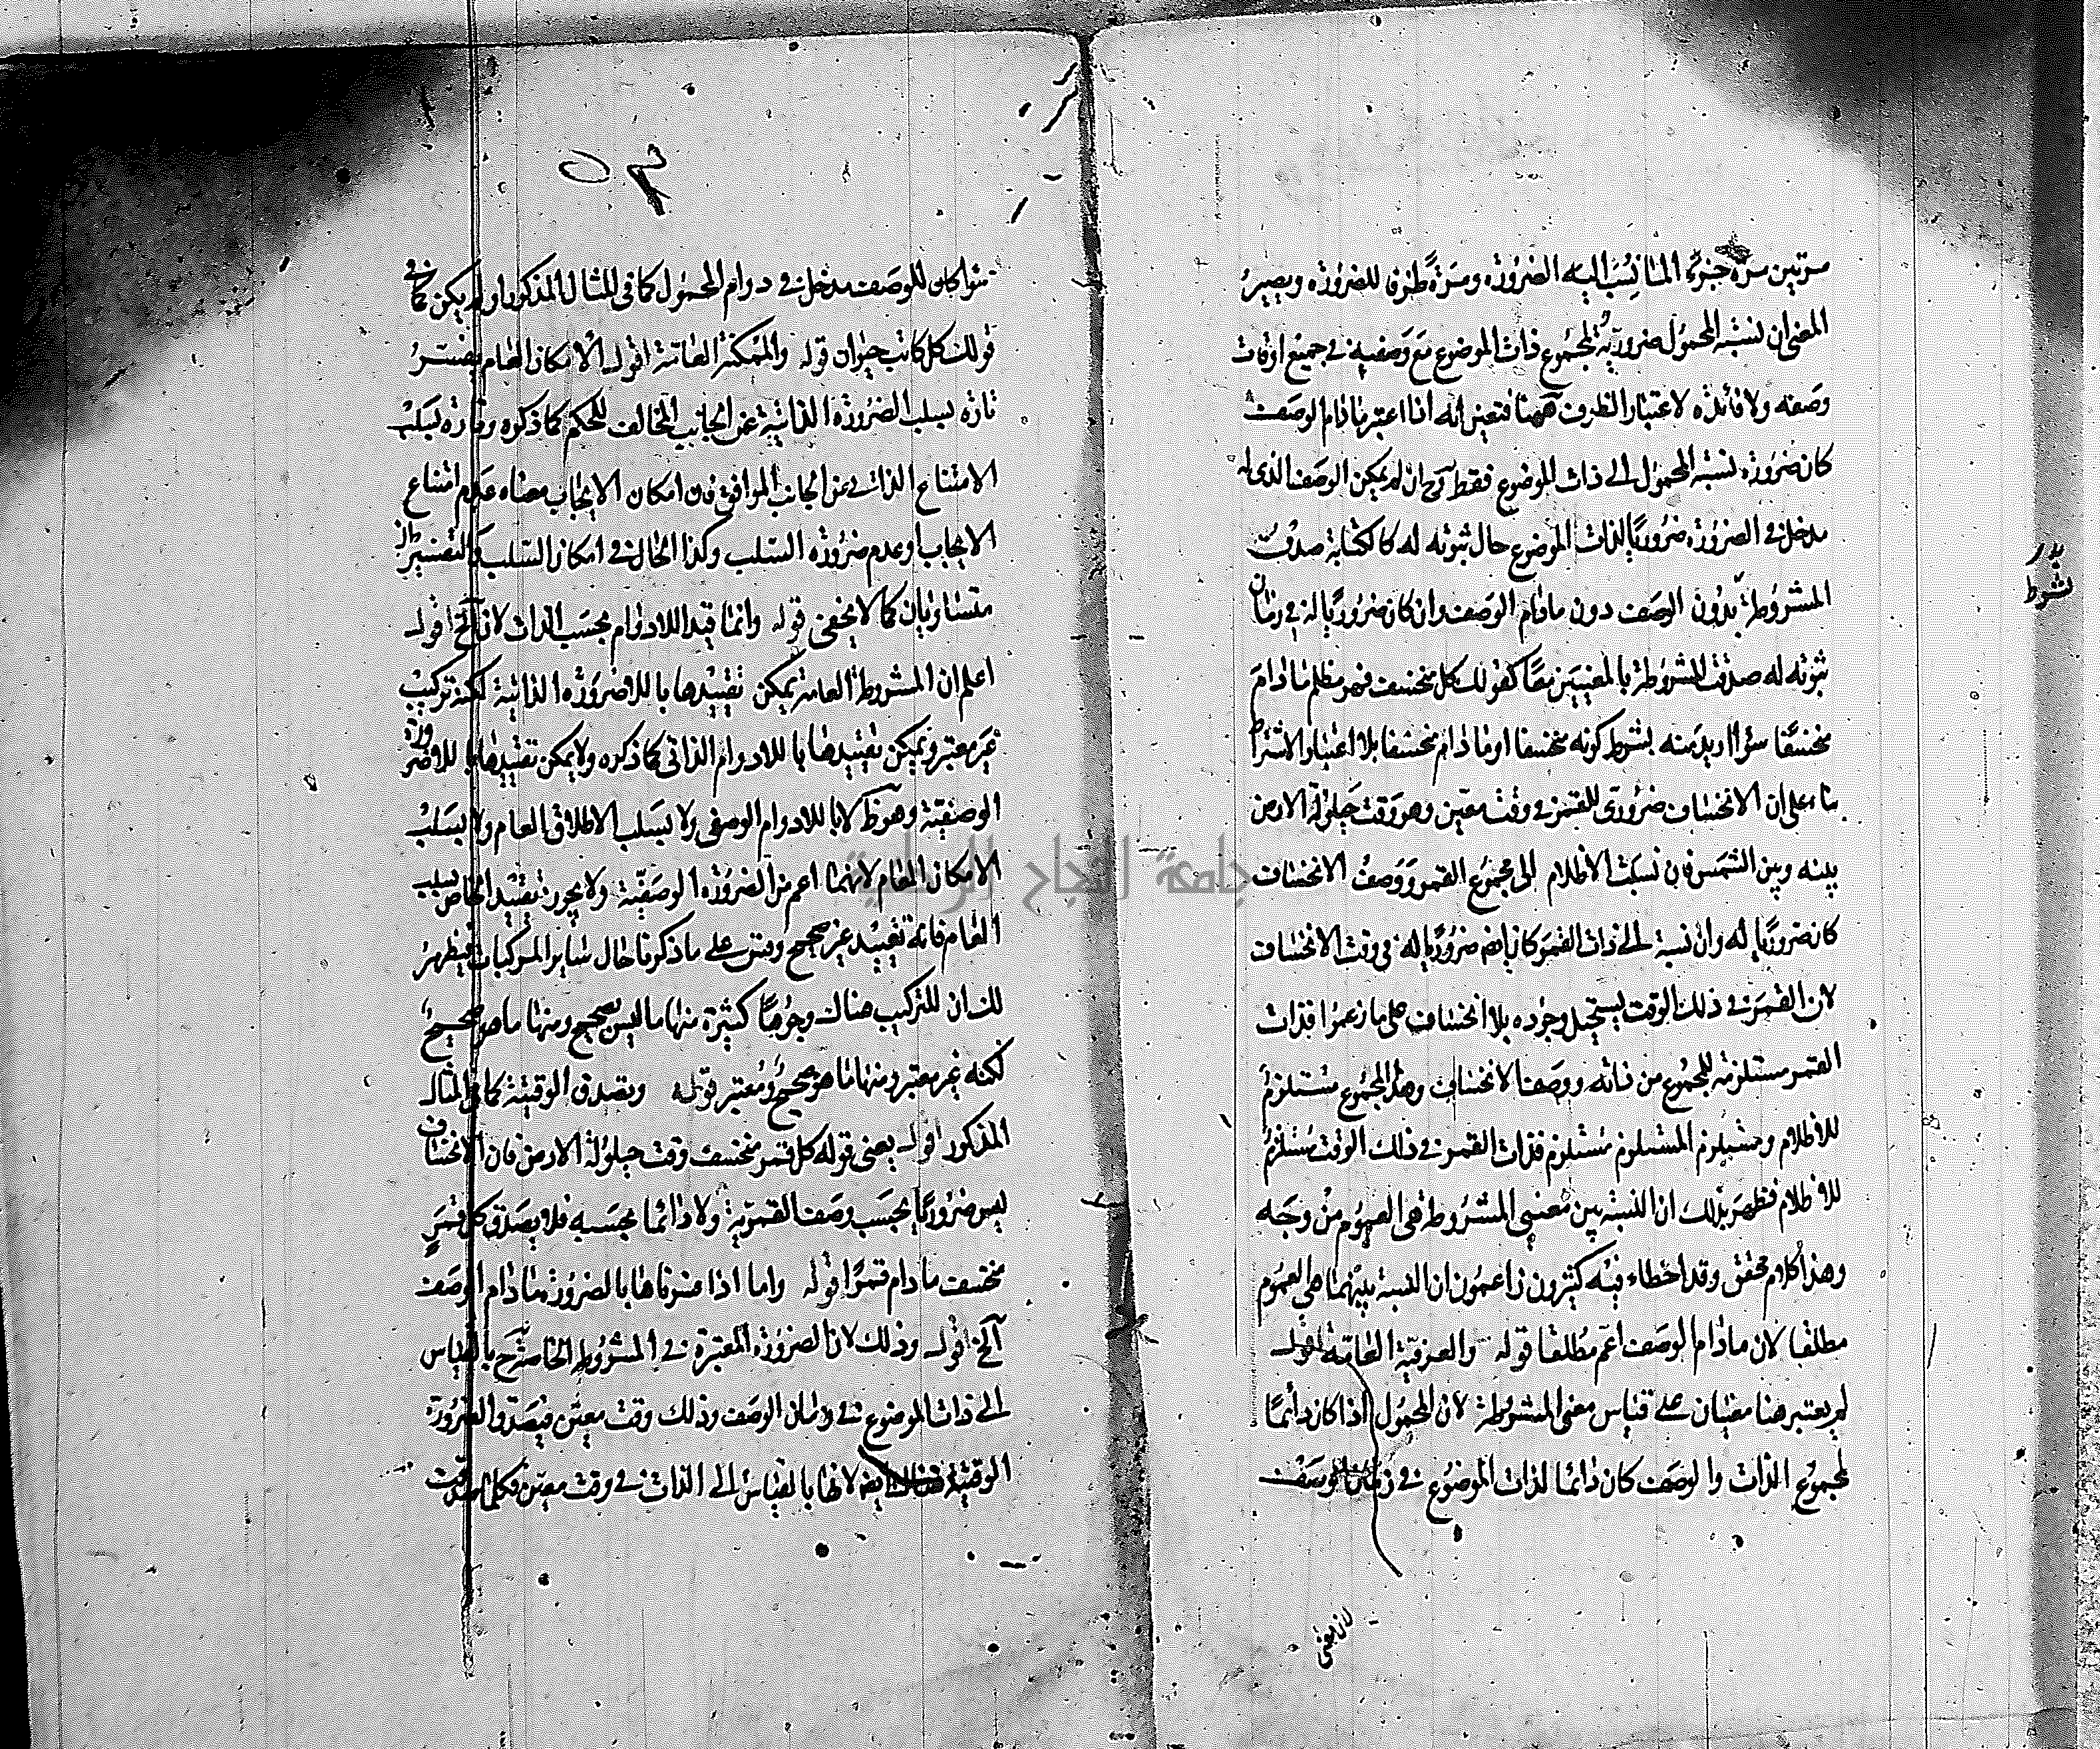 مرتين مرة جزءا لما نسب اليه الضرورة ومرة طرفا للضرورة ويصير
المعنى ان نسبة المحمول ضرورية لمجموع ذات الموضوع مع وصفيه في جميع اوقات
وصفه ولا فائدة لاعتبار الظرف ههنا فتعين انه اذا اعتبر مادام الوصف
كان ضرورة نسبة المحمول الى ذات الموضوع فقط فح ان لم يكن الوصف الذي له
مدخل في الضرورة ضروريا لذات الموضوع حال ثبوته له كالكتابة صدقت
المشروطة بدون الوصف دون مادام الوصف وان كان ضروريا له في زمان
ثبوته له صدقت المشروطة بالمعنيين معا كقولك كل منخسف فهو مظلم مادام
منخسفا سواء اريد منه بشرط كونه منخسفا او مادام منخسفا بلا اعتبار الاشتراط
بناء على ان الانخساف ضروري للقمر في وقت معين وهو وقت حيلولة الارض
بينه وبين الشمس فان نسبت الاظلام الى مجموع القمر ووصف الانخساف
كان ضروريا له وان نسبة الى ذات القمر كان ايضا ضروريا له في وقت الانخساف
لان القمر في ذلك الوقت يستحيل وجوده بلا انخساف على ما زعموا فذات
القمر مستلزمة للمجموع من ذاته ووصف الانخساف وهذا المجموع مستلزم
للاظلام ومستلزم المستلزم مستلزم فذات القمر في ذلك الوقت مستلزم
للاظلام فظهر بذلك ان النسبة بين معنيى المشروطة هي العموم من وجه
وهذا كلام محقق وقد اخطاء فيه كثيرون زاعمون ان النسبة بينهما هي العموم
مطلقا لان مادام الوصف اعم مطلقا قوله والعرفية العامة اقول
لم يعتبر هنا معنيان على قياس معنى المشروطة لان المحمول اذا كان دائما
لمجموع الذات والوصف كان دائما لذات الموضوع في زمان الوصف
بدل
بشرط
٥٣
سواء كان للوصف مدخل في دوام المحمول كما في المثال المذكور او لم يكن كما في
قولك كل كاتب حيوان قوله والممكنة العامة اقول الامكان العام يفسر
تارة بسلب الضرورة الذاتية عن الجانب المخالف للحكم كما ذكره وتارة بسلب
الامتناع الذاتي عن الجانب الموافق فان امكان الايجاب معناه عدم امتناع
الايجاب او عدم ضرورة السلب وكذا الحال في امكان السلب والتفسيران
متساويان كما لا يخفى قوله وانما قيد اللادوام بحسب الذات لان الخ اقول
اعلم ان المشروطة العامة يمكن تقييدها باللاضرورة الذاتية لكنه تركيب
غير معتبر ويمكن تقييدها باللادوام الذاتي كما ذكره ولا يمكن تقييدها باللاضرورة
الوصفية وهو ظ ولا باللادوام الوصفي ولا بسلب الاطلاق العام ولا بسلب
الامكان العام لانهما اعم من الضرورة الوصفية ولا يجوز تقييد الخاص بسلب
العام فانه تقييد غير صحيح وقس على ما ذكرنا حال سائر المركبات فيظهر
لك ان للتركيب هناك وجوها كثيرة منها ما ليس صحيح ومنها ما هو صحيح
لكنه غير معتبر ومنها ما هو صحيح ومعتبر قوله وتصدق الوقتية كما في المثال
المذكور اقول يعني قوله كل قمر منخسف وقت حيلولة الارض فان الانخساف
ليس ضروريا بحسب وصف القمرية ولا دائما بحسبه فلا يصدق كل قمر
منخسف مادام قمرا قوله واما اذا فسرناها بالضرورة مادام الوصف
الخ اقول وذلك لان الضرورة المعتبرة في المشروطة الخاصة ح بالقياس
الى ذات الموضوع في زمان الوصف وذلك وقت معين فيصدق الضرورة
الوقتية هناك ايضا لانها بالقياس الى الذات في وقت معين فكلما صدقت